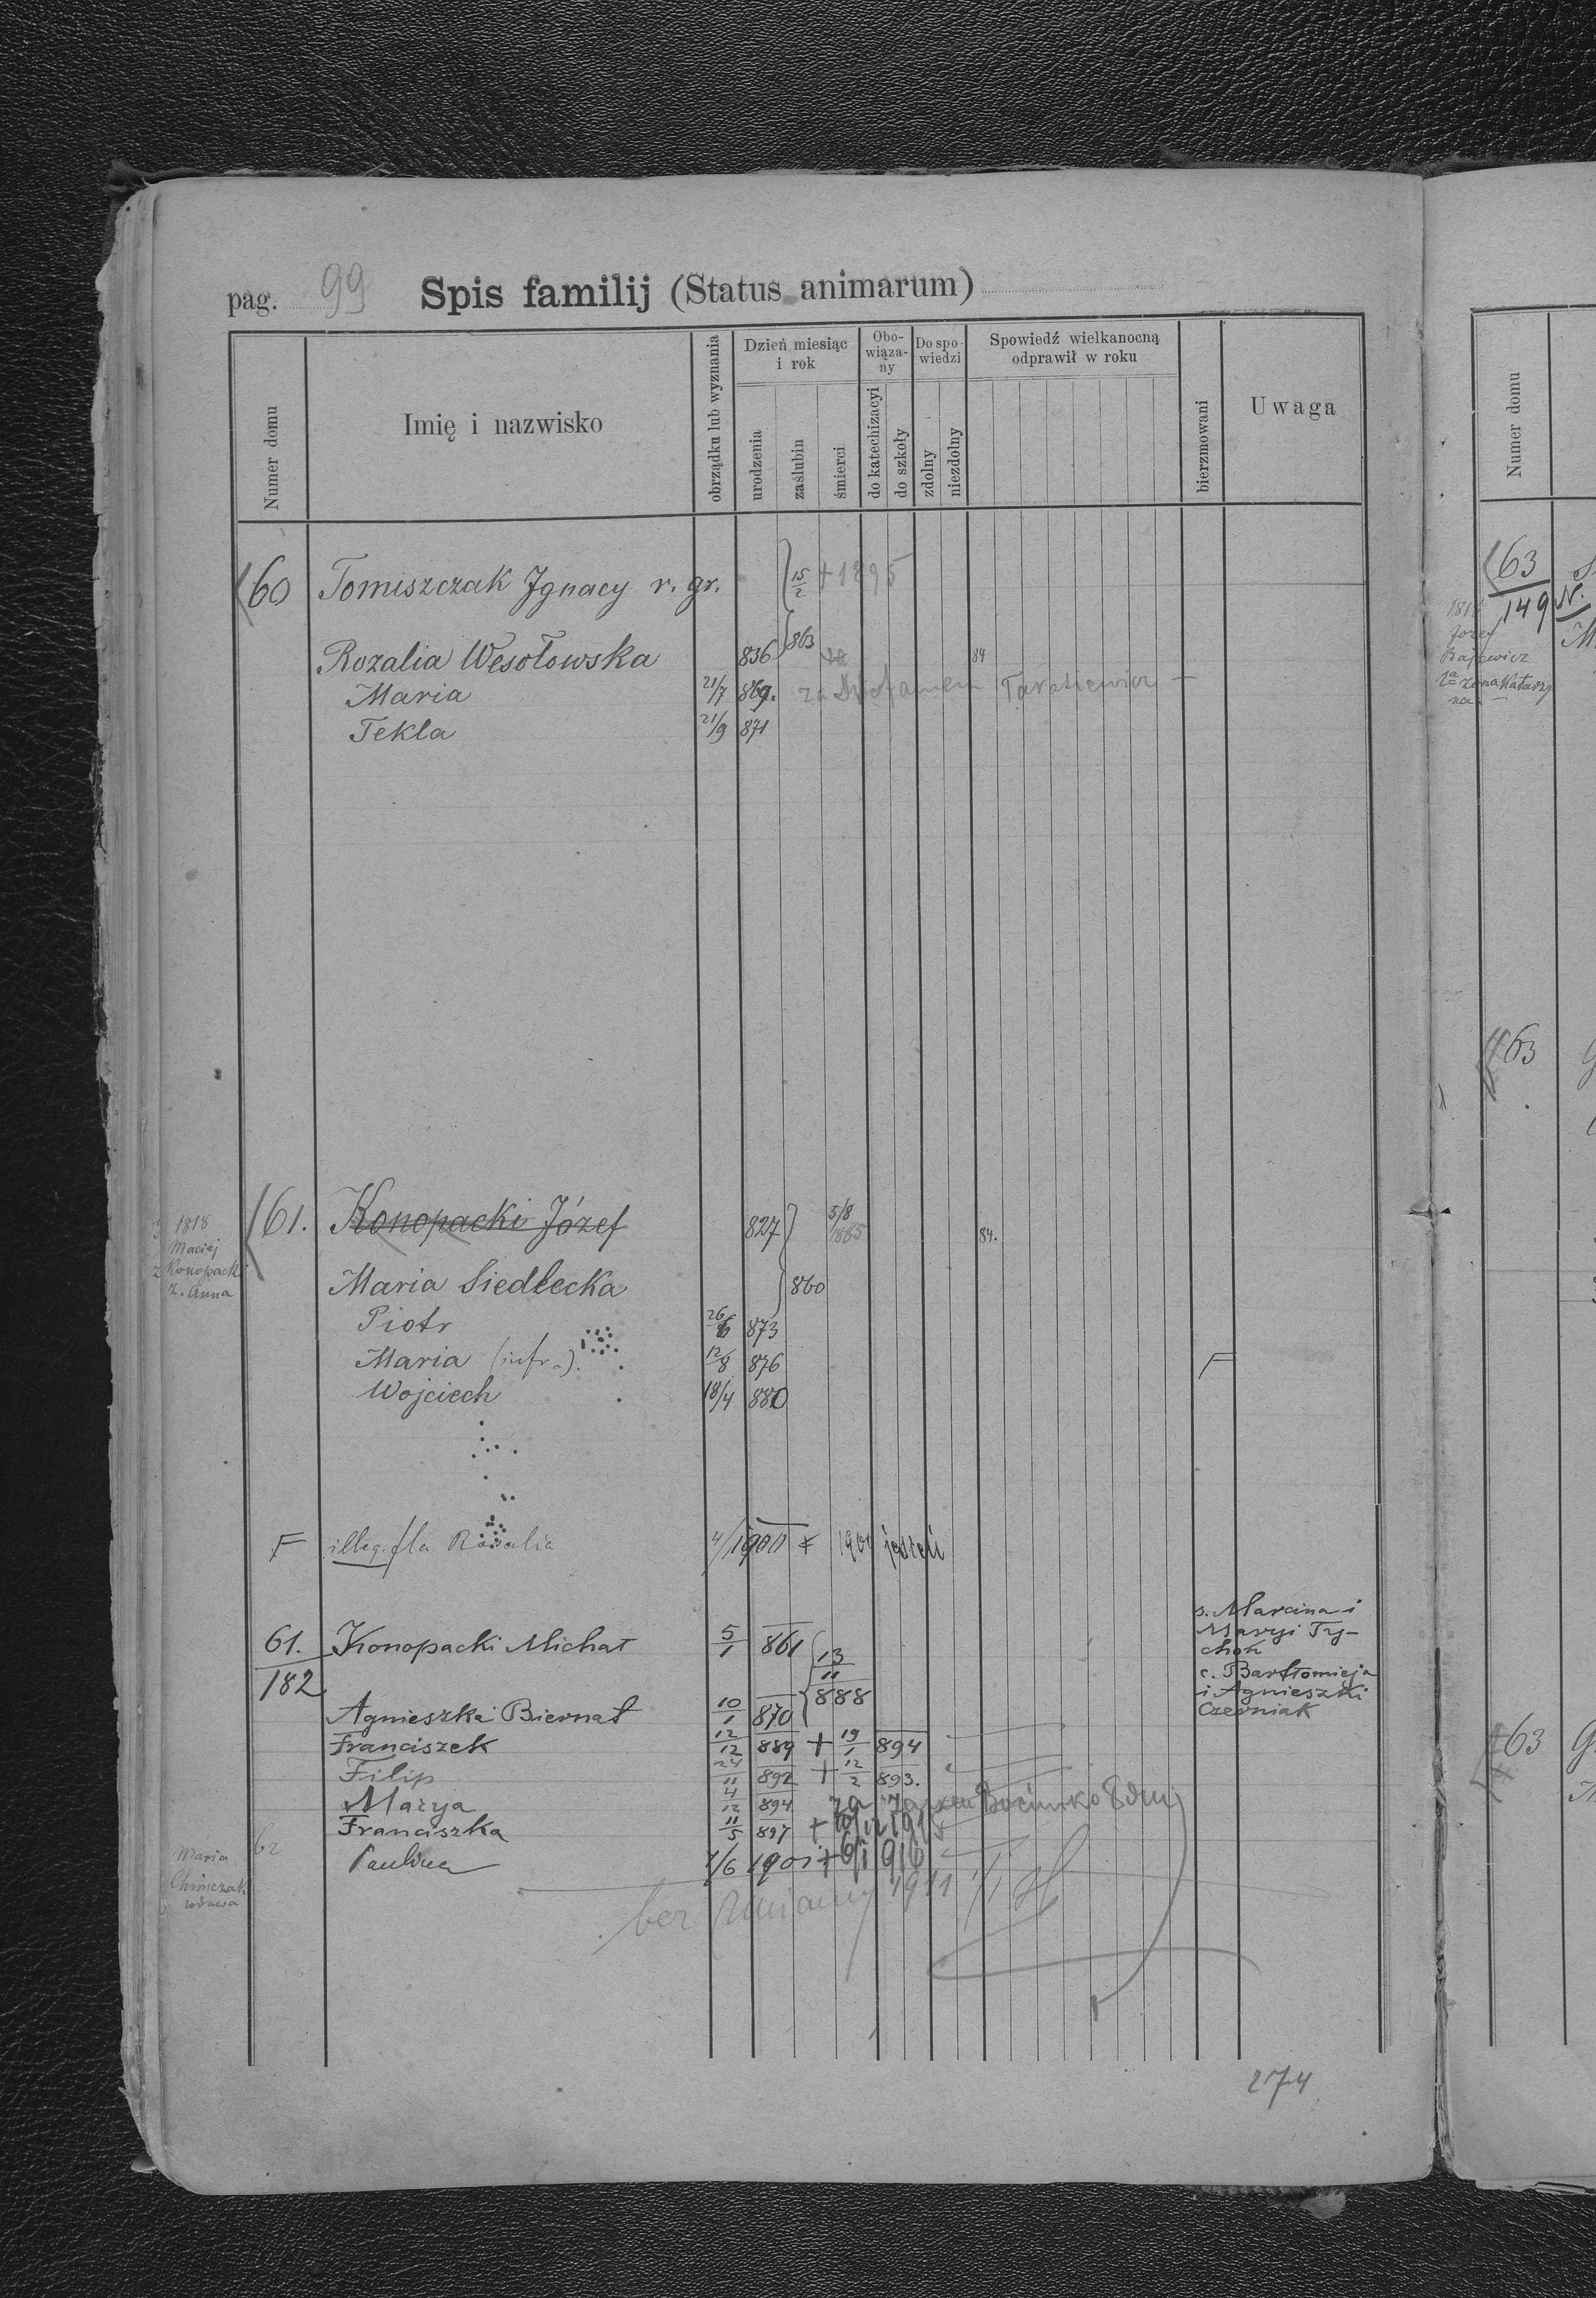 pag. 99 Spis familij (Status animarum)
Numer domu
Imię i nazwisko
obrządku lub wyznania
Dzień miesiąc i rok
urodzenia
zaślubin
śmierci
Obo-
wiąza-
ny
do katechizacyi
do szkoły
Do spo-
wiedzi
zdolny
niezdolny
Spowiedź wielkanocną
odprawił w roku
bierzmowani
Uwaga
60 Tomiszczak Ignacy r. gr. 15/2 +1895
Rozalia Wesołowska 836 863 84
Maria 21/7 869. za
Tekla 21/9 871
1818
Maciej
Konopacki
ż. Anna
61. Konopacki Józef 827 5/8 885 84.
Maria Siedlecka 860
Piotr 26/6 873
Maria (infr.). 12/8 876
Wojciech 18/4 880
illeg. fla Rozalia 4/1900 1900 jesień
61.
182
Konopacki Michał 5/1 861 13/11 888
s. Marcina i
Maryi Try-
choń
c. Bartłomieja
i Agnieszki
Czerniak
Agnieszka Biernat 10/1 870
Franciszek 12/12 889 + 19/1 894
Filip 24/11 892 + 12/2 893.
Marya 4/12 894 za
Franciszka 11/5 897 +
62 Paulina 7/6 1901 + 6/1 916
Maria
Chimczak
wdowa
bez zmiany 1911
274
Numer domu
63
149
N.
Józef
Bajewicz
1a żona Katarzy
na
63
63